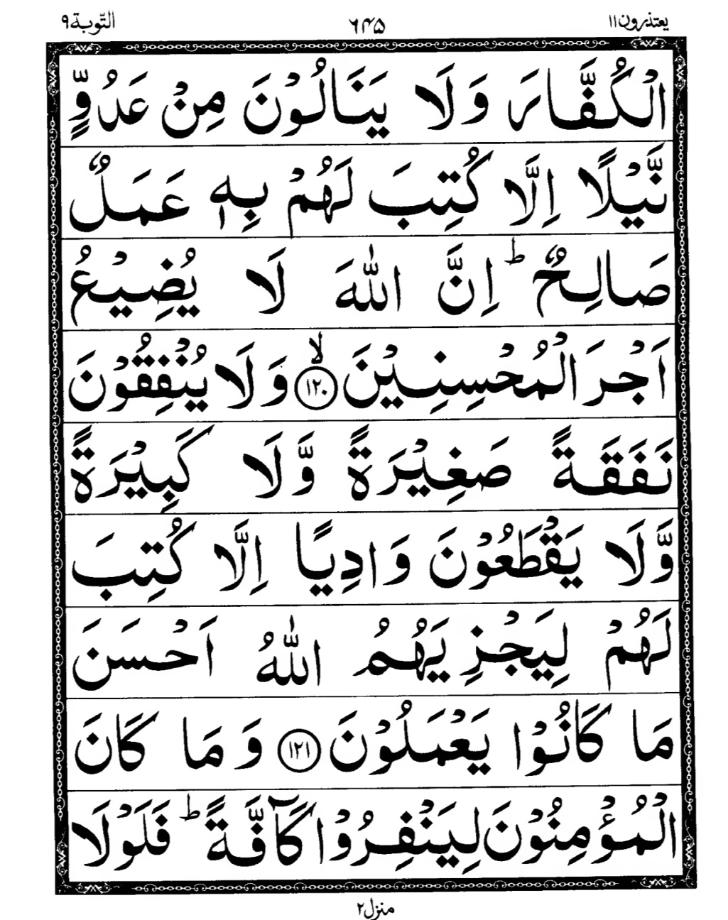 التّوبة ٩
٦٤٥
يعتذرون ١١
الْكُفَّارَ وَلَا يَنَالُوْنَ مِنْ عَدُوٍّ
نَّيْلًا اِلَّا كُتِبَ لَهُمْ بِهٖ عَمَلٌ
صَالِحٌ ؕ اِنَّ اللّٰهَ لَا يُضِيْعُ
اَجْرَ الْمُحْسِنِيْنَ ۙ ﴿۱۲۰﴾ وَلَا يُنْفِقُوْنَ
نَفَقَةً صَغِيْرَةً وَّلَا كَبِيْرَةً
وَّلَا يَقْطَعُوْنَ وَادِيًا اِلَّا كُتِبَ
لَهُمْ لِيَجْزِيَهُمُ اللّٰهُ اَحْسَنَ
مَا كَانُوْا يَعْمَلُوْنَ ﴿۱۲۱﴾ وَمَا كَانَ
الْمُؤْمِنُوْنَ لِيَنْفِرُوْا كَآفَّةً ؕ فَلَوْلَا
منزل ٢